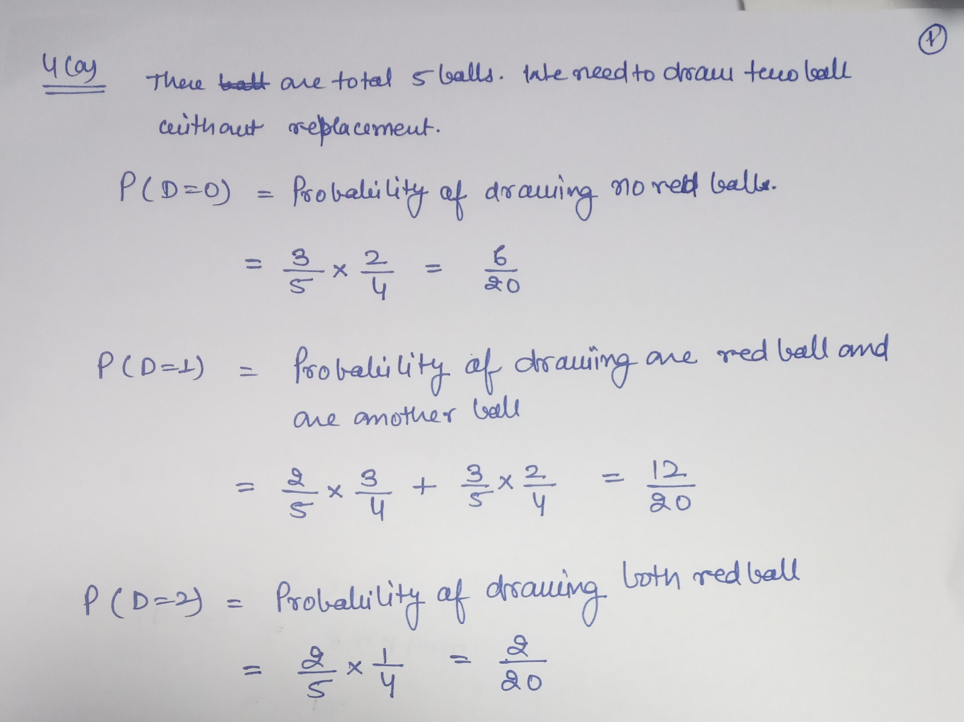 ①
4(a) There ball are total 5 balls. We need to draw two ball
without replacement.
P(D=0) = Probability of drawing no red balls.
= 3/5 × 2/4 = 6/20
P(D=1) = Probability of drawing one red ball and
one another ball
= 2/5 × 3/4 + 3/5 × 2/4 = 12/20
P(D=2) = Probability of drawing both red ball
= 2/5 × 1/4 = 2/20